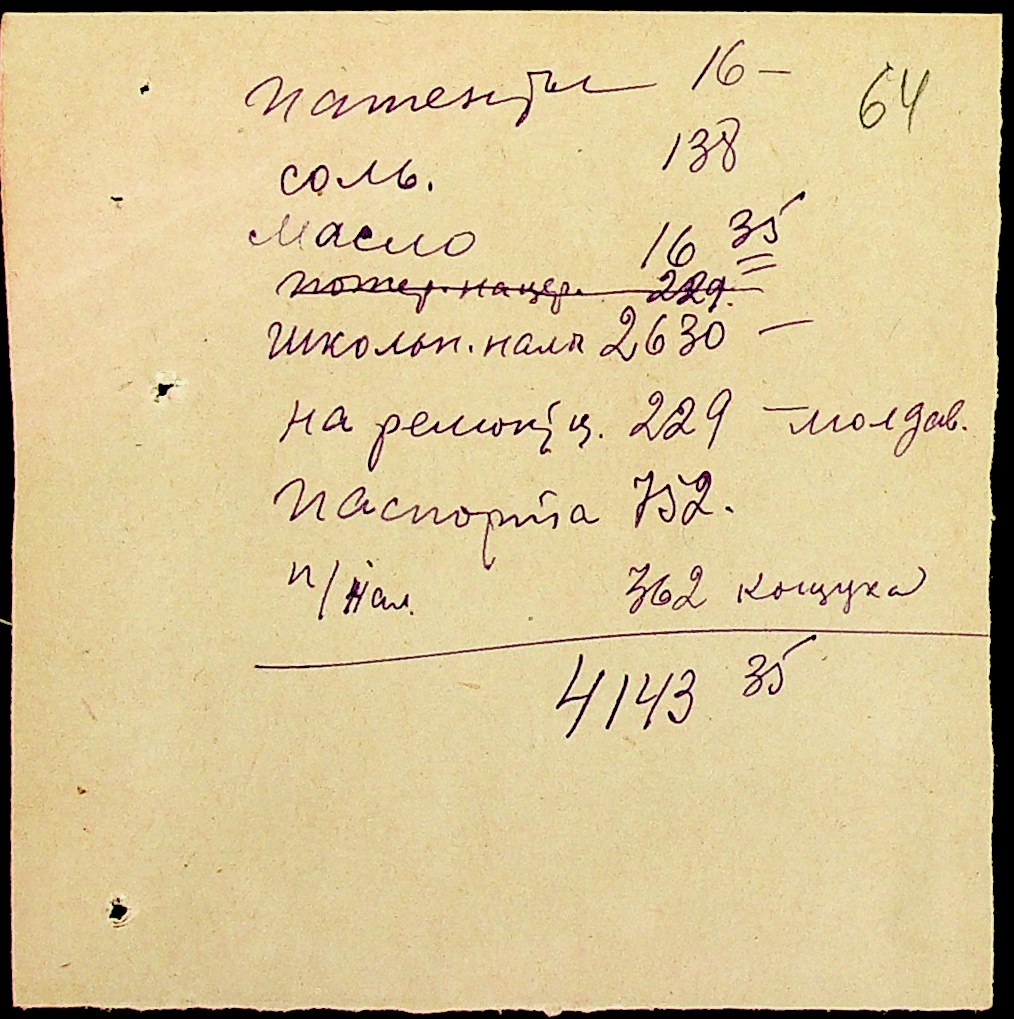 патенты 16 – 64
соль. 138
масло 16 35
пожер. на цер. 229.
школьн. нал 2630 –
на ремонт ц. 229 – молдав.
паспорта 752.
п/нал. 362 кощуха
4143 35